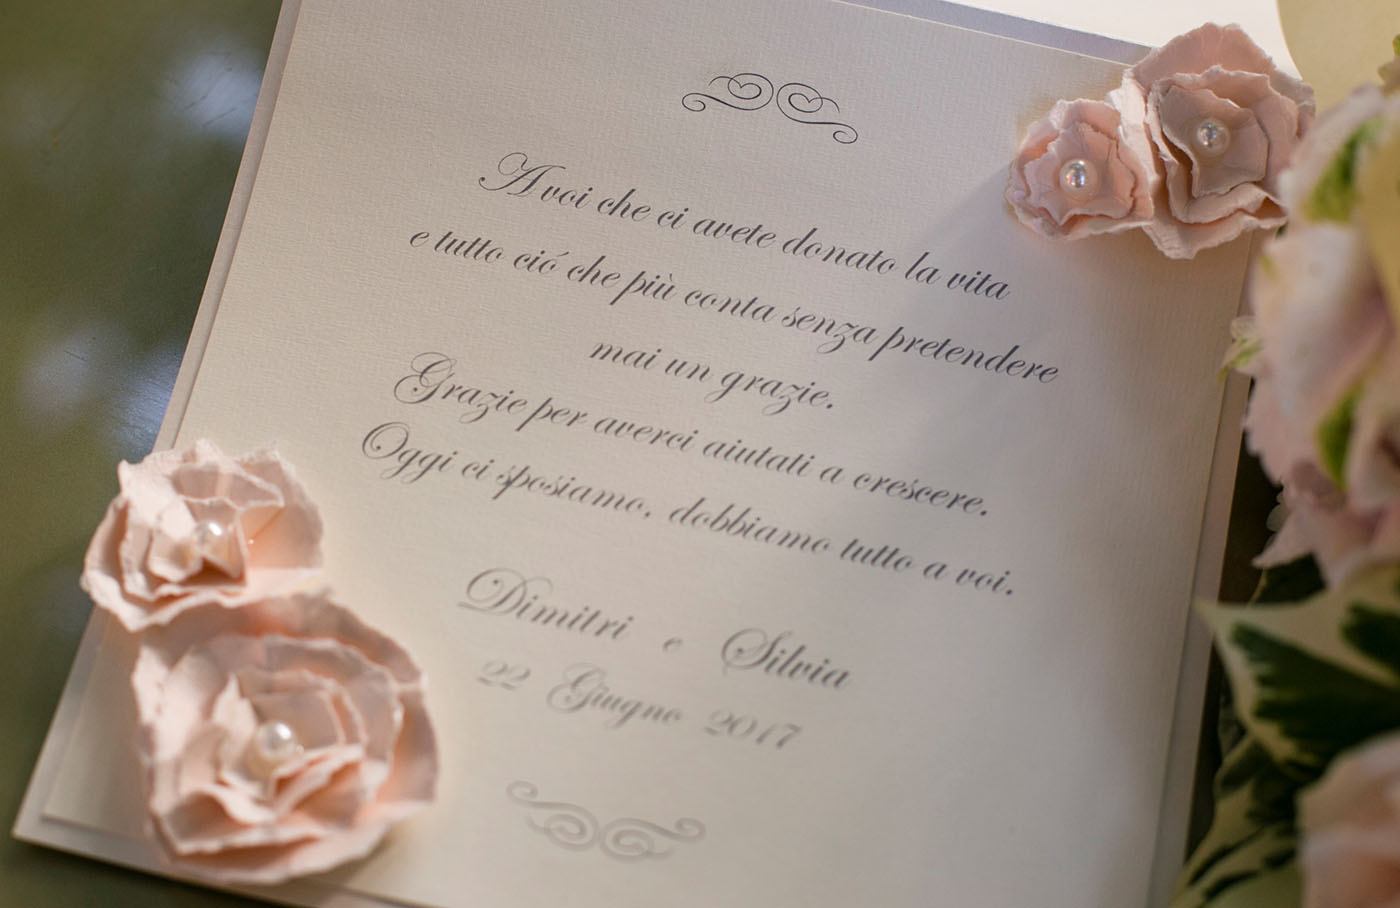 A voi che ci avete donato la vita
e tutto ció che più conta senza pretendere
mai un grazie.
Grazie per averci aiutati a crescere.
Oggi ci sposiamo, dobbiamo tutto a voi.
Dimitri e Silvia
22 Giugno 2017